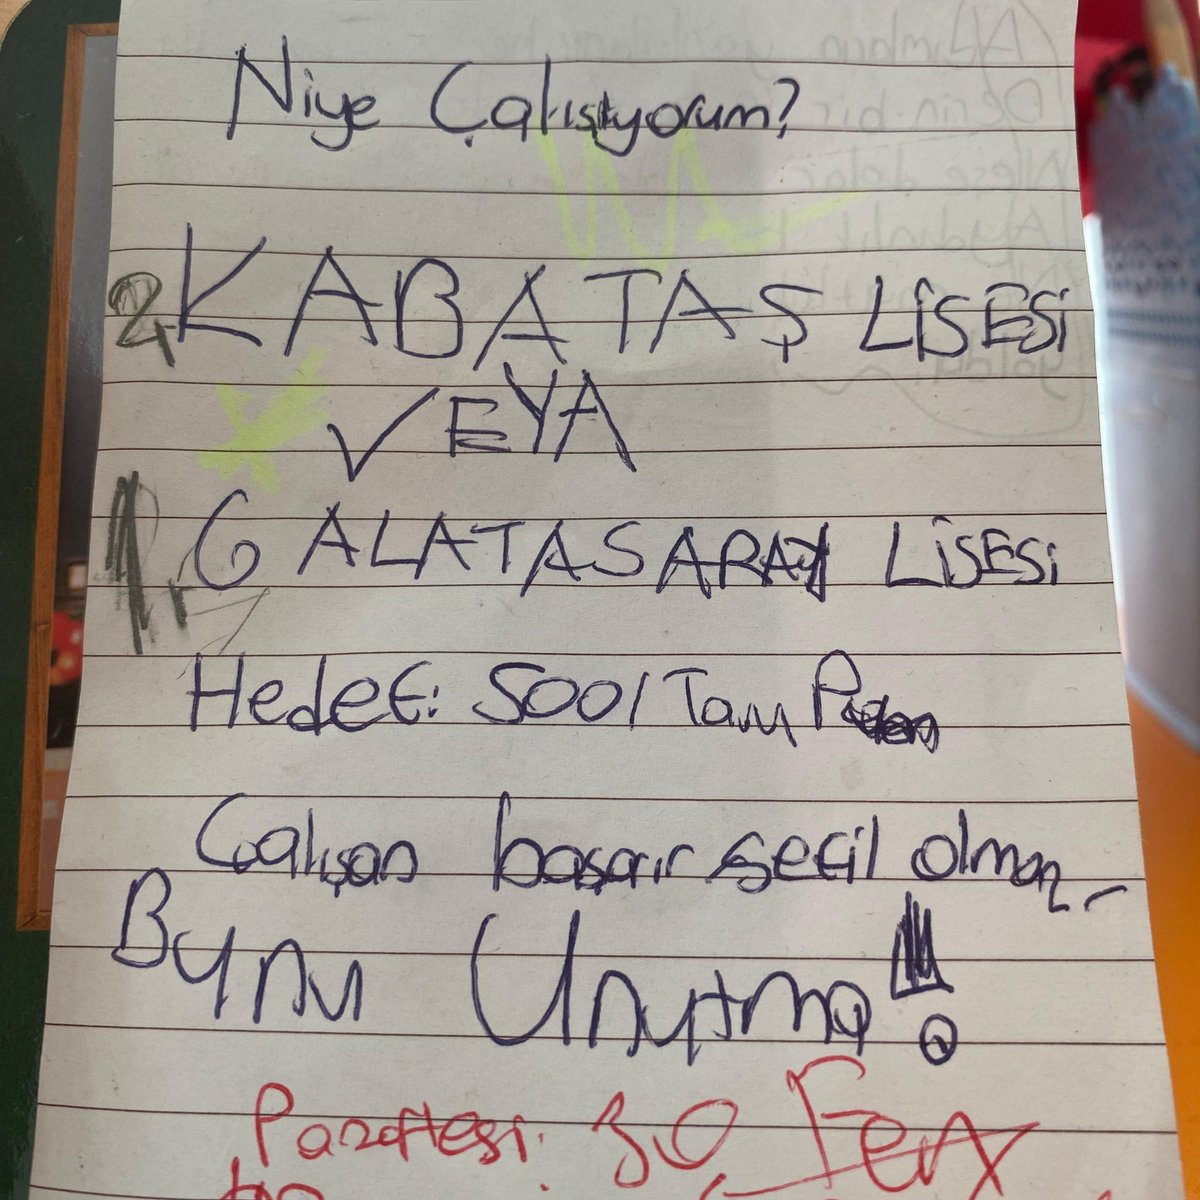 Niye Çalışıyorum?
2. KABATAŞ LİSESİ
VEYA
1. GALATASARAY LİSESİ
Hedef: 500/Tam
Çalışan başarır sefil olmaz
Bunu Unutma!
Pazartesi: 30 Fen